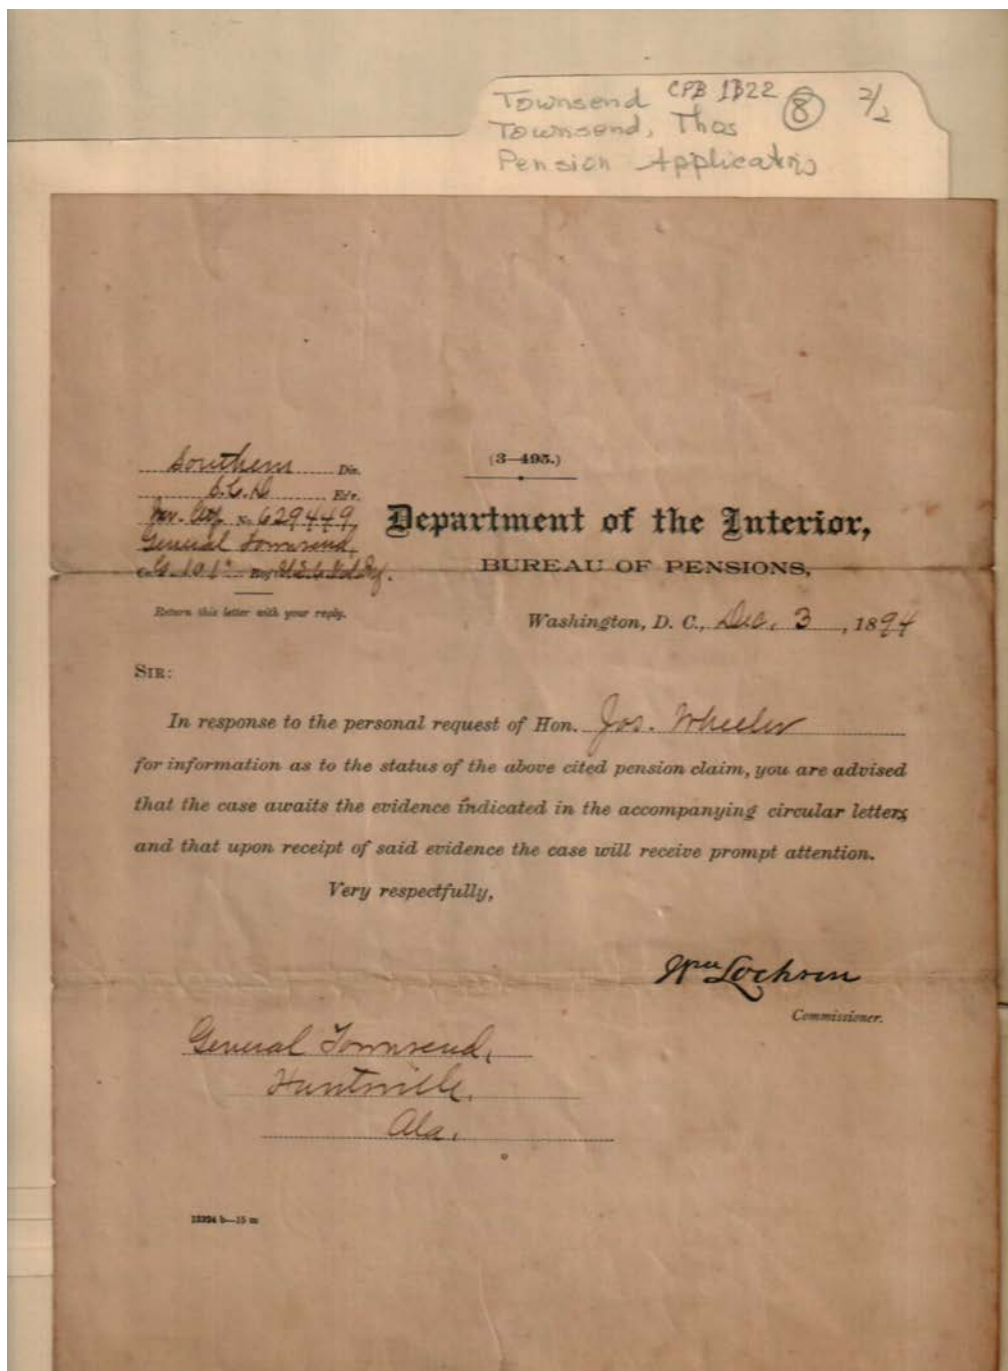 Townsend CPB 1B22 (8) 2/2
Townsend, Thos
Pension Applicatns
(3—495.)
Southern Div.
S.C.D Ex'r.
Inv. Org. No. 629449,
General Townsend,
Co. G. 101" Reg't U.S.C.Vol.Inf.
Return this letter with your reply.
Department of the Interior,
BUREAU OF PENSIONS,
Washington, D. C., Dec. 3, 1894
SIR:
In response to the personal request of Hon. Jos. Wheeler
for information as to the status of the above cited pension claim, you are advised
that the case awaits the evidence indicated in the accompanying circular letters
and that upon receipt of said evidence the case will receive prompt attention.
Very respectfully,
Wm Lochren
Commissioner.
General Townsend,
Huntsville,
Ala.
b—15 m